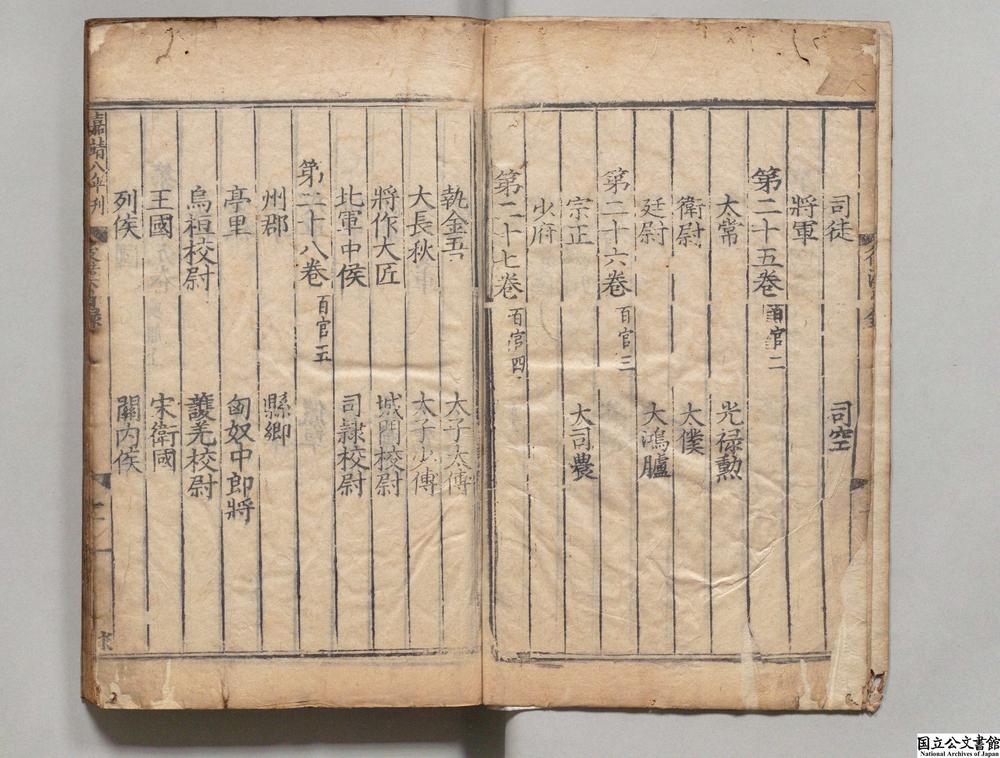 司徒 司空
將軍
第二十五卷 百官二
太常 光禄勲
衛尉 太僕
廷尉 大鴻臚
第二十六卷 百官三
宗正 大司農
少府
第二十七卷 百官四
執金吾 太子太傅
大長秋 太子少傅
將作大匠 城門校尉
北軍中候 司隷校尉
第二十八卷 百官五
州郡 縣鄉
亭里 匈奴中郎將
烏桓校尉 護羌校尉
王國 宋衛國
列侯 關内侯
嘉靖八年刊
国立公文書館
National Archives of Japan